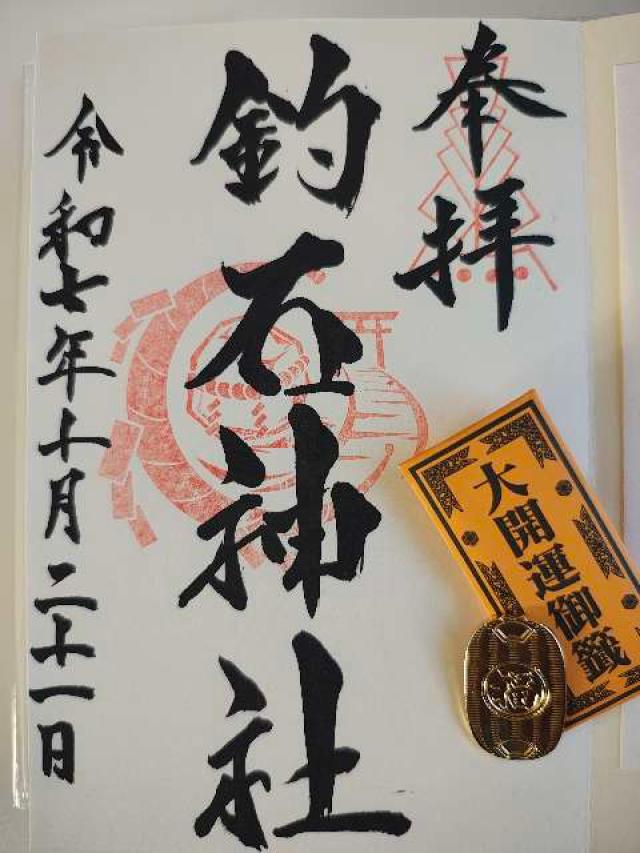 奉拝
釣石神社
令和七年十月二十一日
大開運御籤
福